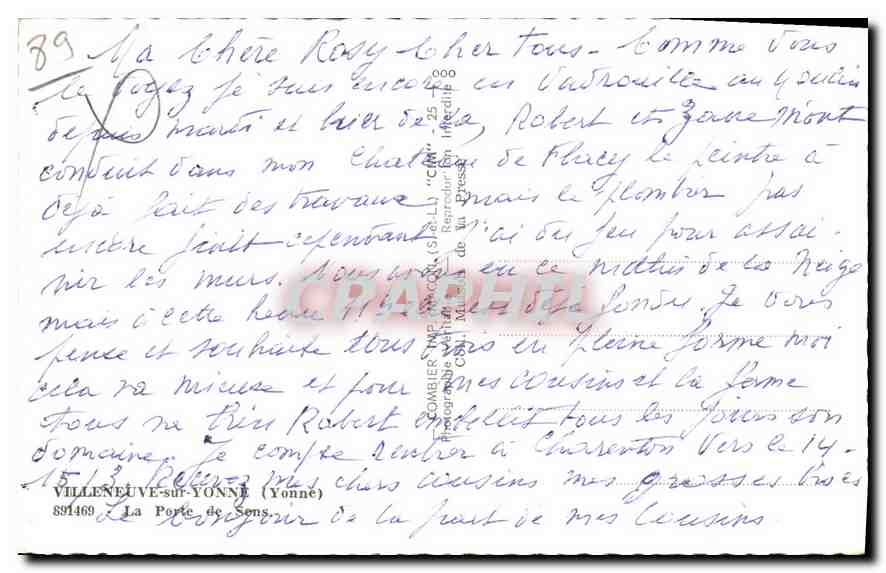 89 Ma Chère Rosy Cher Tous - Comme vous
le voyez je suis encore en vadrouille au Moulin
depuis mardi et hier Robert et m'ont
conduit dans mon Chateau de Flacy le peintre à
déjà fait des travaux mais le plombier pas
encore finit cependant j'ai du feu pour assai-
nir les murs. Nous avons eu ce matin de la Neige
mais à cette heure est déjà fondu. Je vous
pense et souhaite tous en pleine forme moi
cela va mieux et pour mes cousins et la ferme
tous va bien Robert embellit tous les jours son
domaine. Je compte rentrer à Charenton vers le 14-
15/3. Recevez mes chers cousins mes grosses bises
Le bonjour de la part de mes Cousins.
VILLENEUVE-sur-YONNE (Yonne)
891469 - La Porte de Sens.
COMBIER IMP. MACON (S.-et-L.) "CIM"
Photographie Véritable - Reproduction Interdite
CPAPHIL